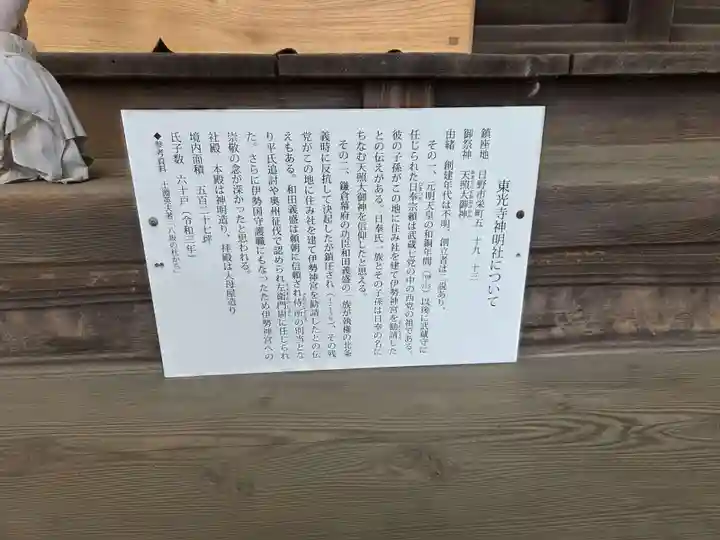 東光寺神明社について
鎮座地　日野市栄町五　十九、十三
御祭神　天照大御神
由緒　創建年代は不明、創立者は二説あり、
その一、元明天皇の和銅年間以後に武蔵守に
任じられた日奉宗頼は武蔵七党の中の西党の祖である、
彼の子孫がこの地に住み社を建て伊勢神宮を勧請した
との伝えがある。日奉氏一族とその子孫は日奉の名に
ちなむ天照大御神を信仰したと思える。
その二、鎌倉幕府の功臣和田義盛の一族が執権の北条
義時に反抗して決起したが鎮圧され、その残
党がこの地に住み社を建て伊勢神宮を勧請したとの伝
えもある。和田義盛は頼朝に信頼され侍所の別当とな
り平氏追討や奥州征伐で認められ左衛門尉に任じられ
た。さらに伊勢国守護職にもなったため伊勢神宮への
崇敬の念が深かったと思われる。
社殿　本殿は神明造り、拝殿は入母屋造り
境内面積　五百二十七坪
氏子数　六十戸（令和三年）
◆参考資料　土淵英夫著「八坂の杜から」